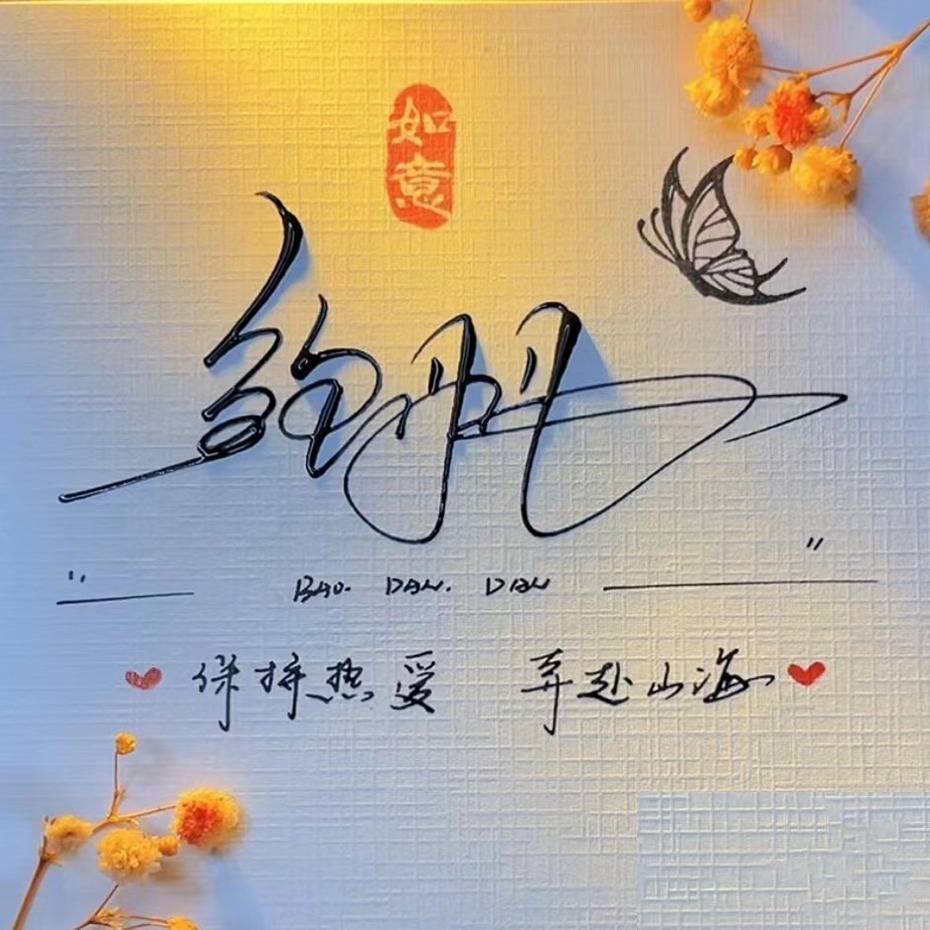 如意
鲍丹丹
BAO. DAN. DAN
保持热爱 奔赴山海